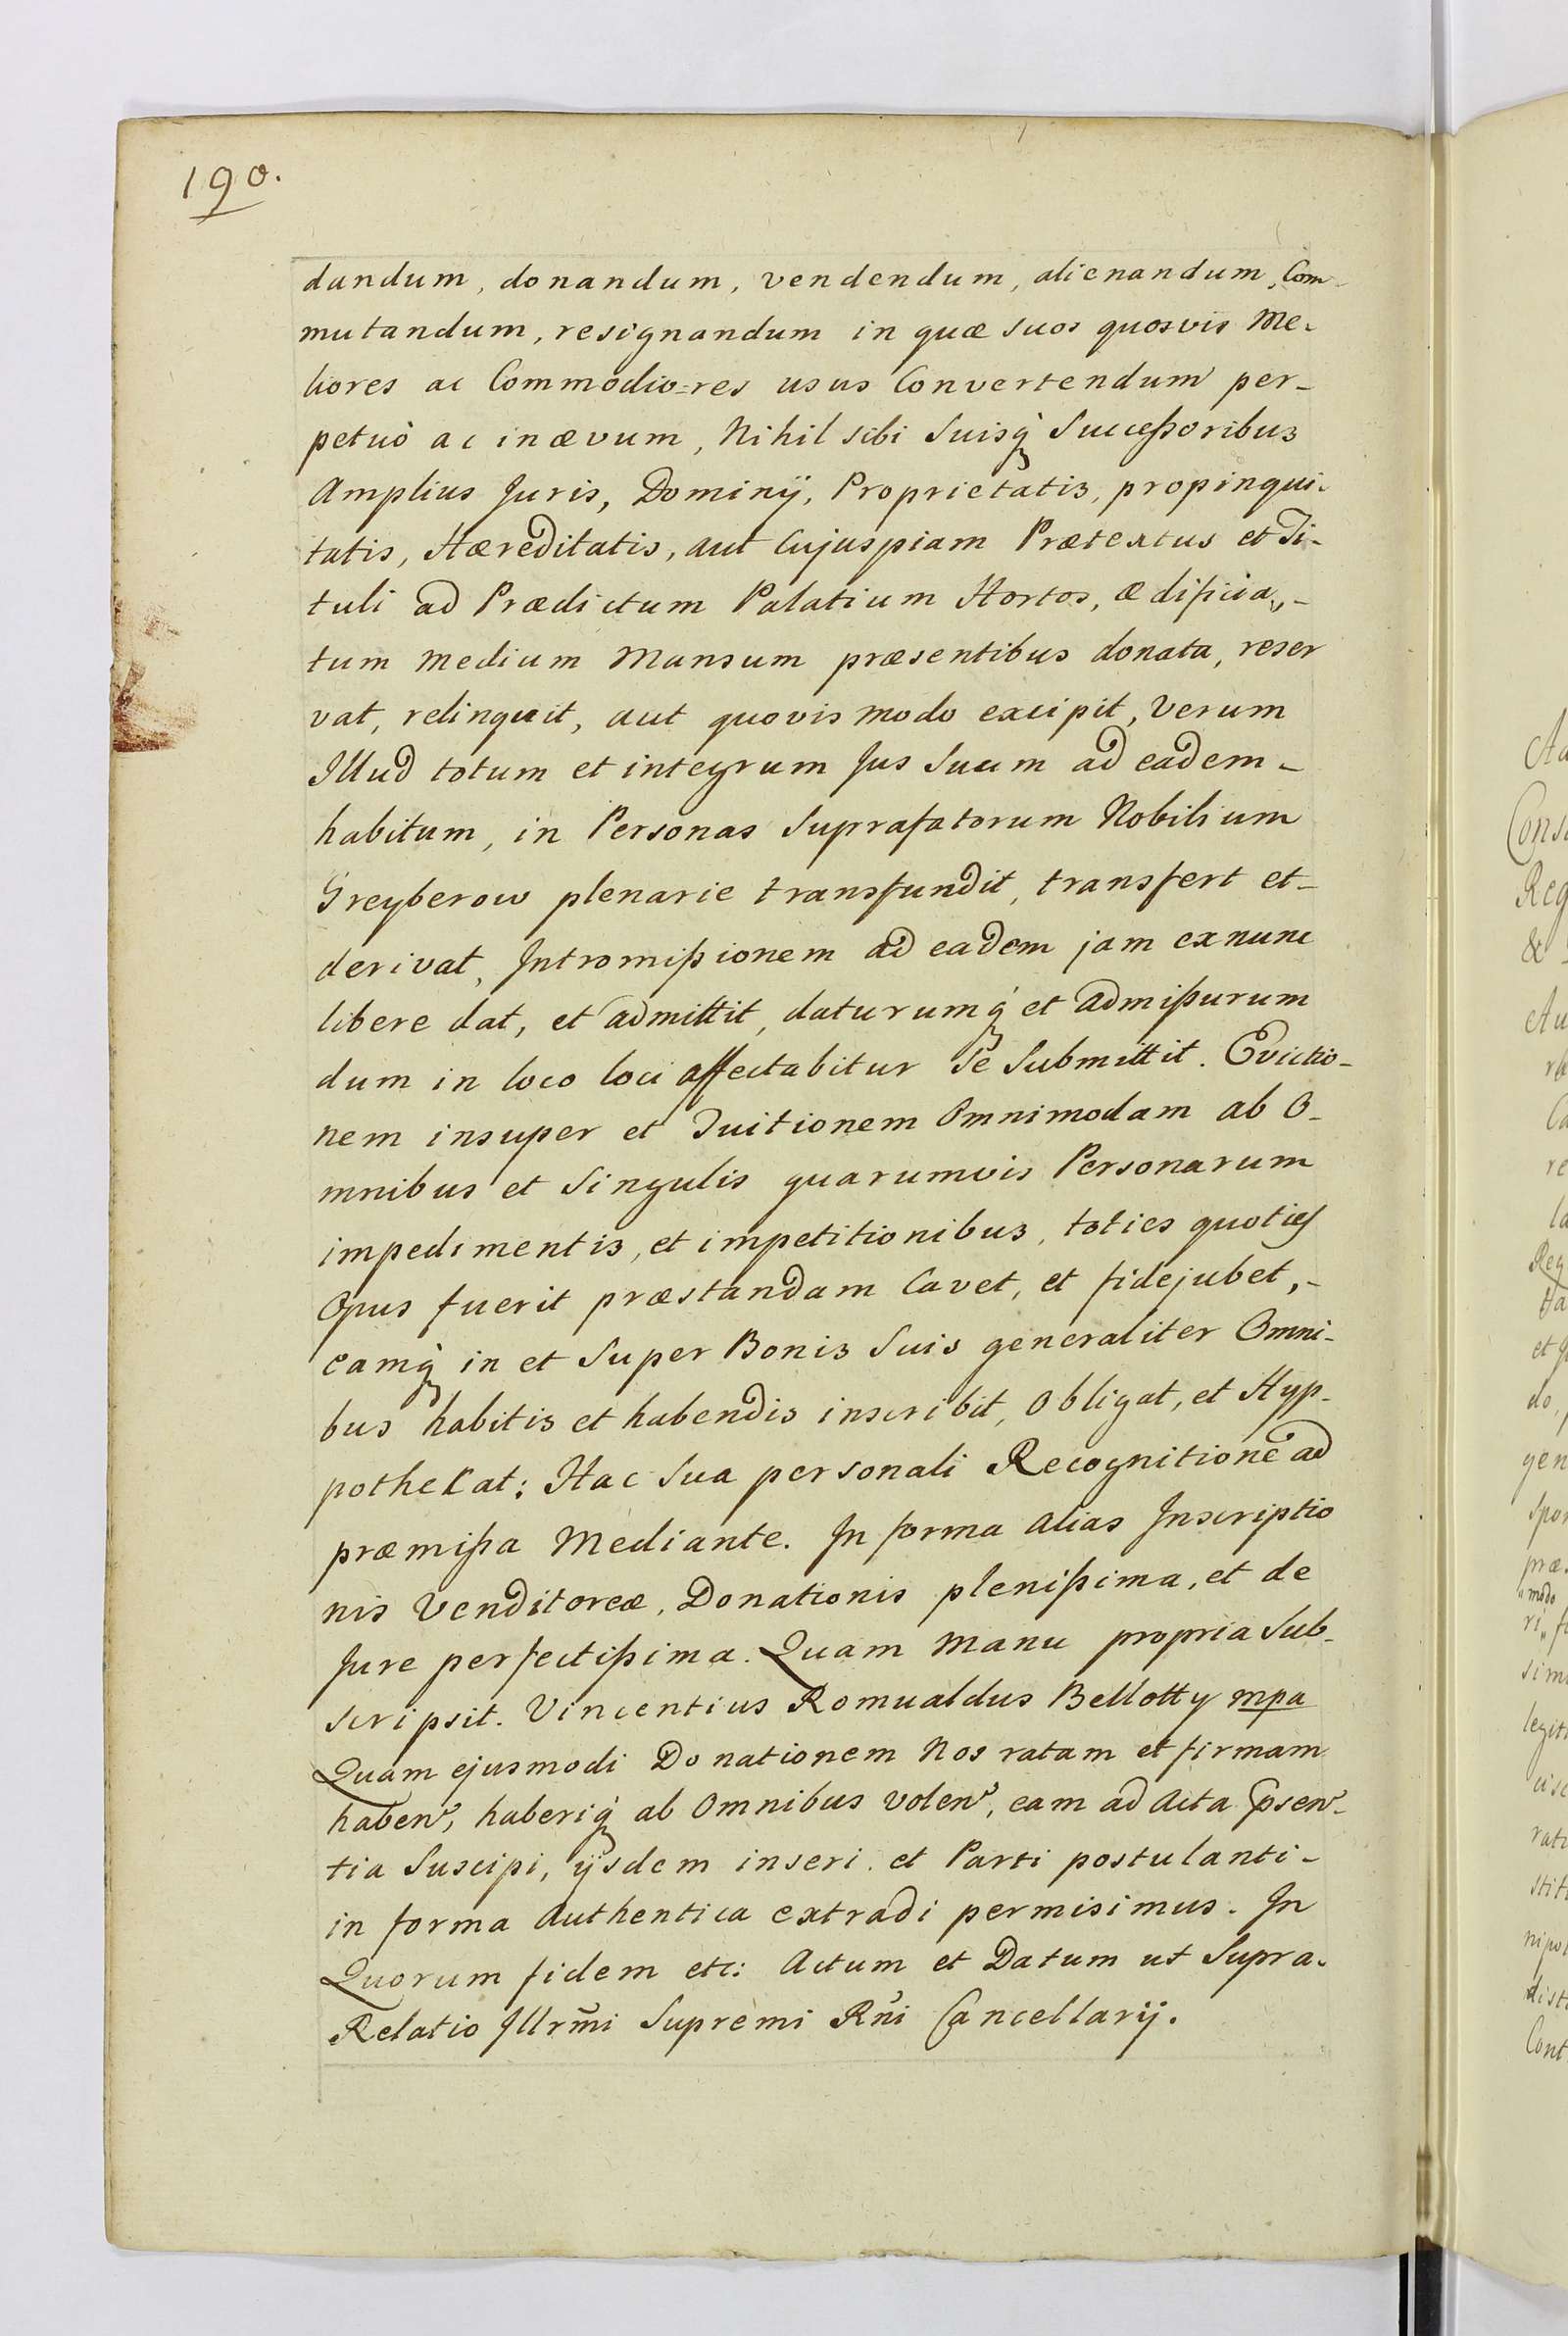 190.
dandum, donandum, vendendum, alienandum, Com-
mutandum, resignandum in quæ suos quosvis Me-
liores ac Commodio=res usus Convertendum per-
petuò ac in ævum, Nihil sibi Suisq́ Succeßoribus
Amplius Juris, Dominÿ, Proprietatis, propinqui-
tatis, Hæreditatis, aut Cujuspiam Prætextus et Ti-
tuli ad Prædictum Palatium Hortos, ædificia,-
tum medium Mansum præsentibus donata, reser
vat, relinquit, aut quovis modo excipit, Verum
Illud totum et integrum Jus Suum ad eadem-
habitum, in Personas Suprafatorum Nobilium
Greyberow plenarie transfundit, transfert et-
derivat, Intromißionem ad eadem jam ex nunc
libere dat, et admittit, daturumq́ et admißurum
dum in loco loci affectabitur Se Submittit. Evictio-
nem insuper et Tuitionem Omnimodam ab O-
mnibus et Singulis quarumvis Personarum
impedimentis, et impetitionibus, toties quoties
Opus fuerit præstandam Cavet, et fidejubet,-
eamq́ in et Super Bonis Suis generaliter Omni-
bus habitis et habendis inscribit, Obligat, et Hyp-
pothekat; Hac Sua personali Recognitione ad
præmißa Mediante. In forma alias Inscriptio
nis Venditoreæ, Donationis plenißima, et de
Jure perfectißima. Quam Manu propria Sub-
scripsit. Vincentius Romualdus Bellotty mpa
Quam ejusmodi Donationem Nos ratam et firmam
haben̄, haberiq́ ab Omnibus volen̄, eam ad Acta p̄sen-
tia Suscipi, ÿsdem inseri, et Parti postulanti-
in forma Authentica extradi permisimus. In
Quorum fidem etc: Actum et Datum ut Supra.
Relatio Illrm̃i Supremi Rñi Cancellarÿ.